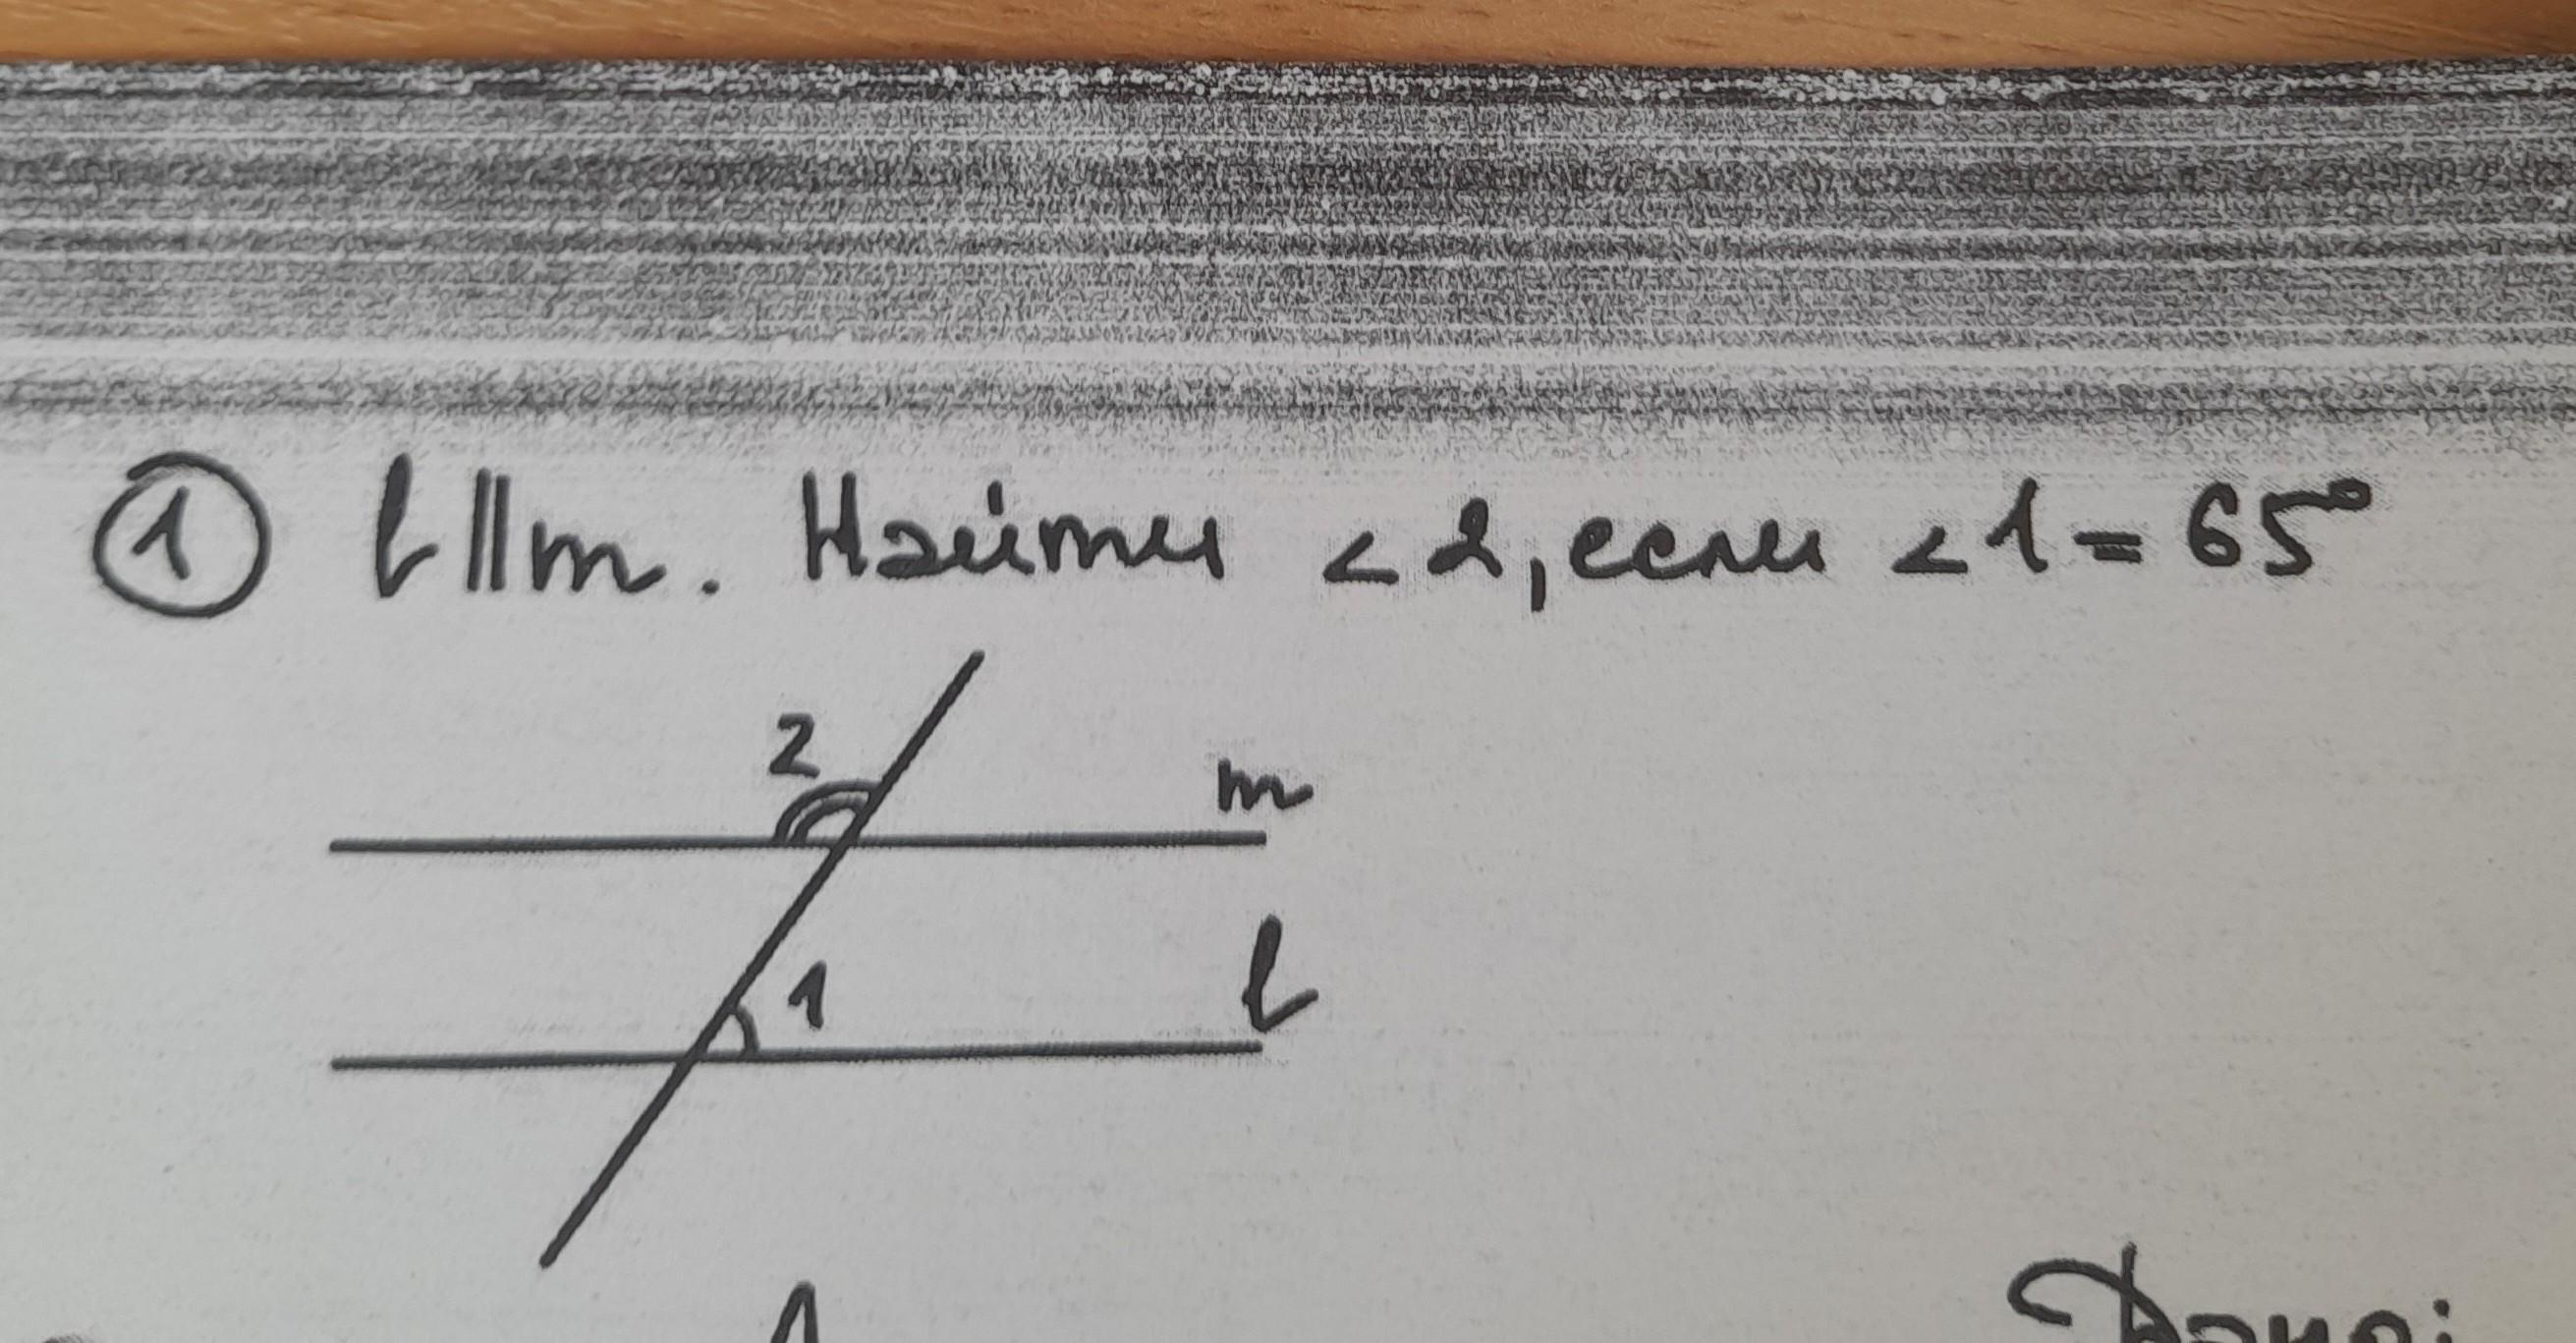 ① l || m. Найти <2, если <1 = 65°
2
m
1
l
Дано: